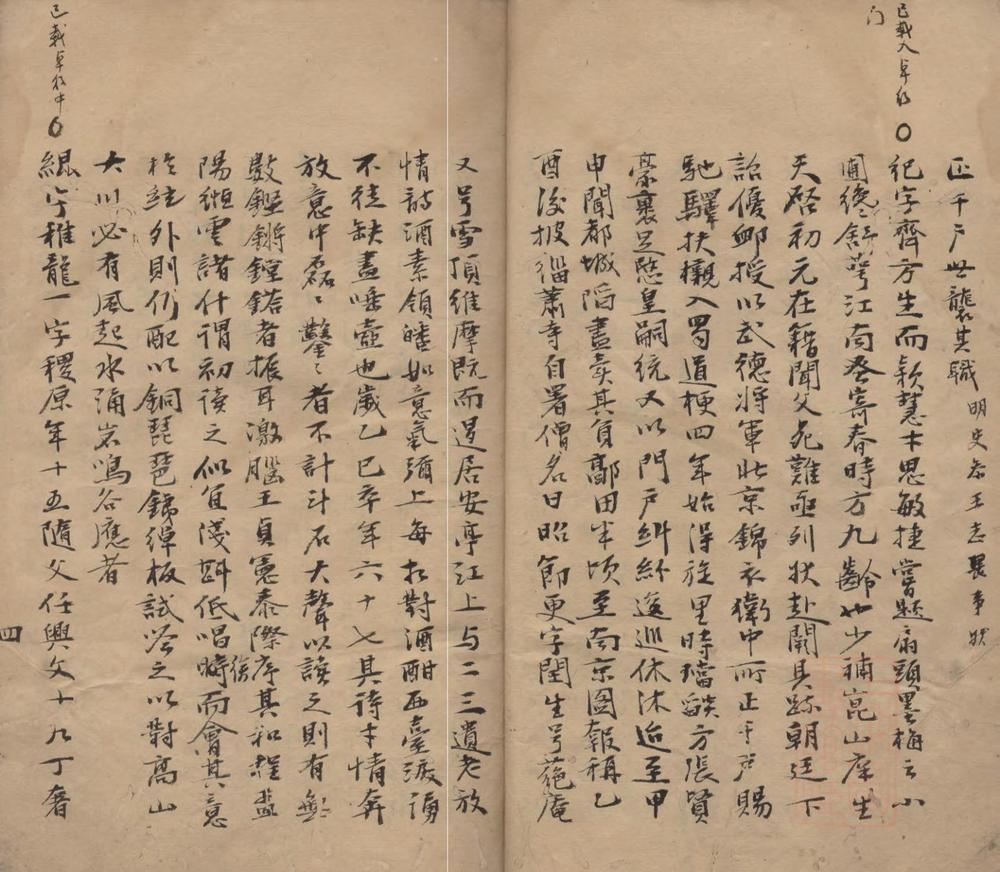 已載入卓行
门
正千户世襲其職 明史忝王志長事狀
紀字齊方生而穎慧才思敏捷嘗題扇頭墨梅云小
園繞舒萼江南春寄春時方九齡廿少補崑山庠生
天啓初元在籍聞父死難亟列狀赴闕具疏朝廷下
詔優卹授以武德將軍北京錦衣衛中所正千户賜
馳驛扶櫬入蜀道梗四年始得旋里時璫燄方張賢
豪裹足愍皇嗣統又以門户糾紛逡巡休沐迨至甲
申聞都城陷盡卖其負郭田半頃至南京圖報稱乙
酉後披緇蕭寺自署僧名曰昭節更字閏生号葹庵
已載卓行中
又号雪頂維摩既而退居安亭江上与二三遺老放
情詩酒素領皤如意氣彌上每於對酒酣西臺淚湧
不徒缺盡唾壺也歲乙巳卒年六十七其待本情奔
放意中磊々鑿々者不計斗石大聲以讀之則有
數鏗鏘鏜鎝者振耳激腦王貞憲泰際序其和程孟
陽緪雲諸什謂初讀之似宜淺斟低唱時而會其意
於絃外則仍配以銅琵琶錦綽板試答之以對高山
大川必有風起水涌岩鳴谷應者
緄字稚龍一字稷原年十五隨父任興文十九丁奢
四